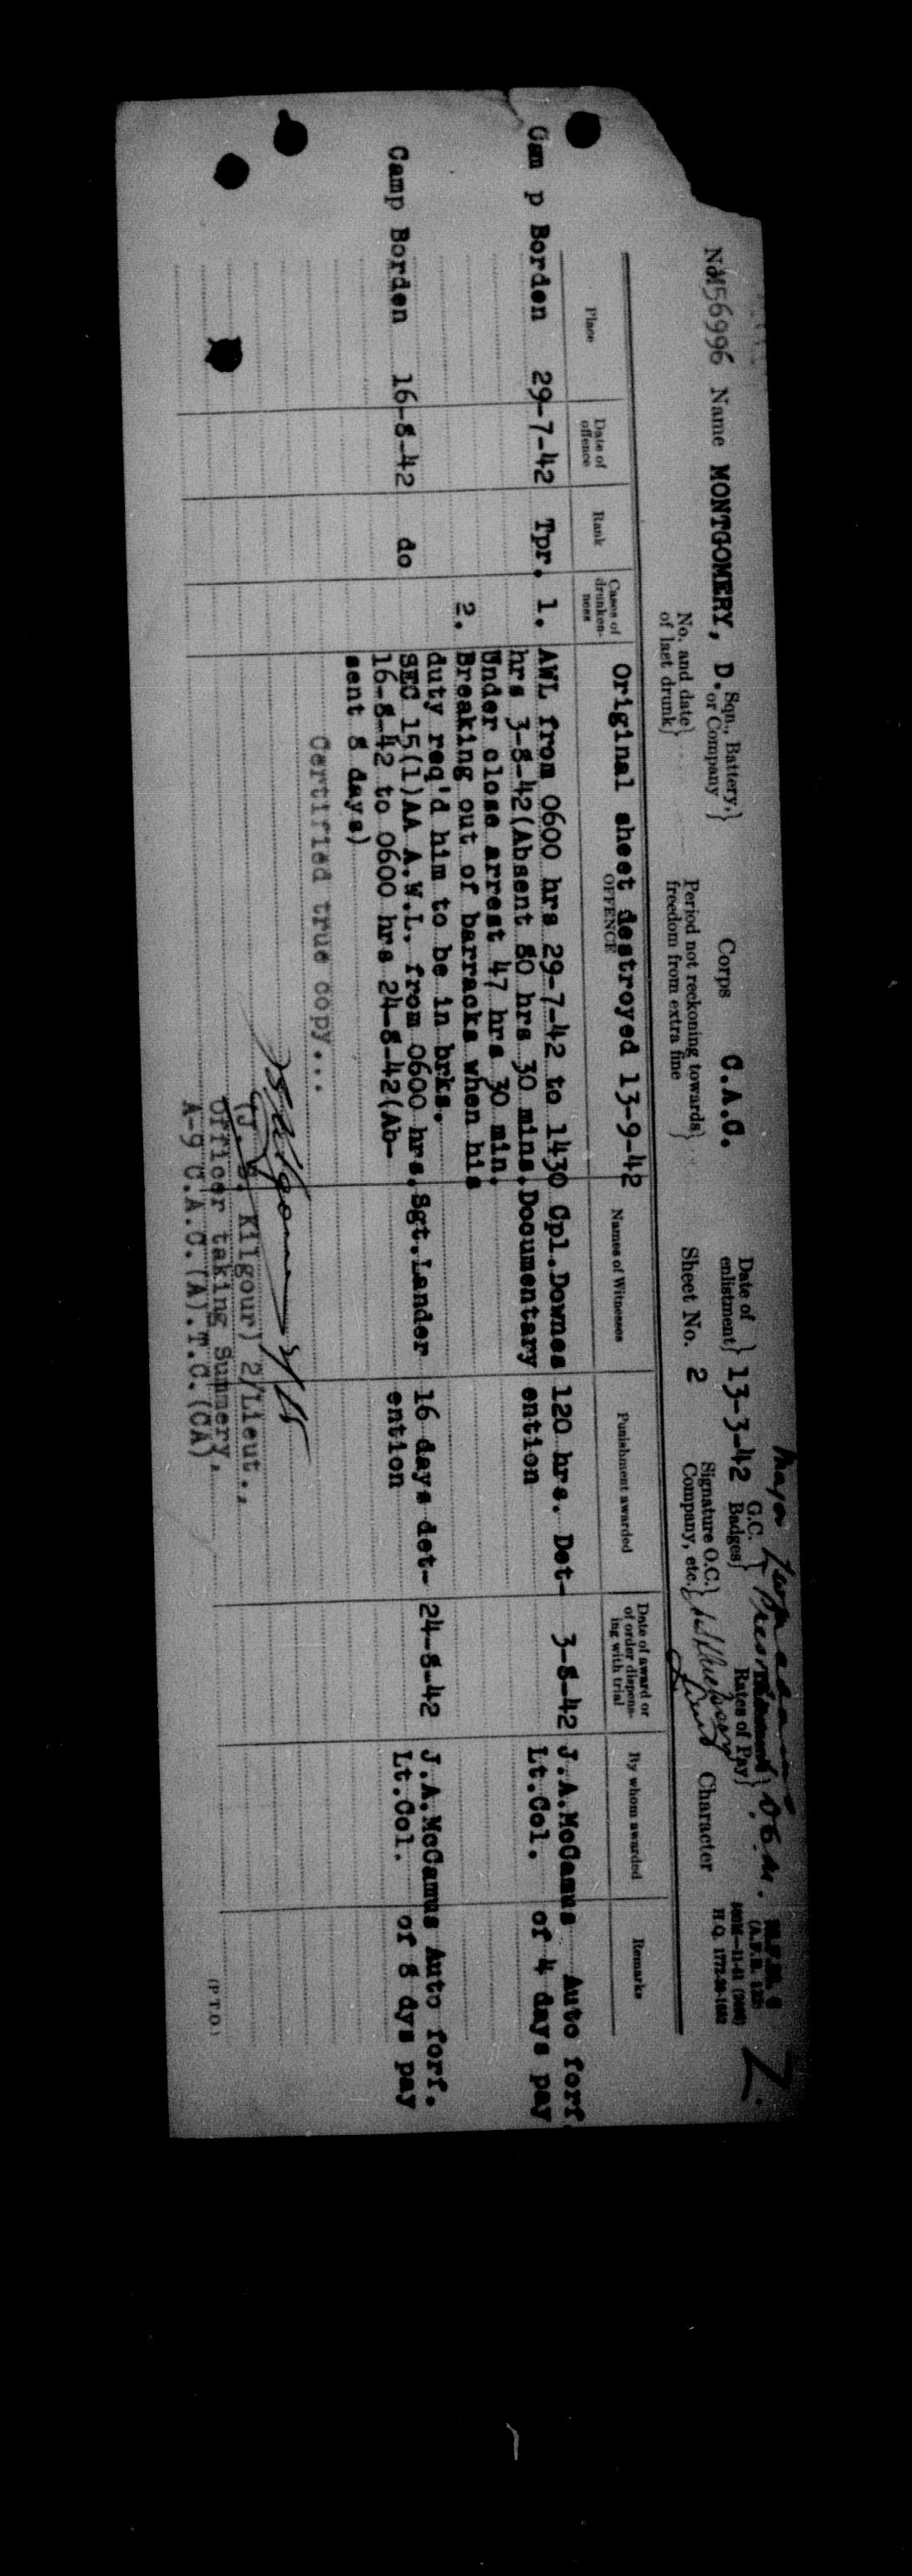 No M56996 Name MONTGOMERY, D. Sqn., Battery, or Company} Corps C.A.C. Date of enlistment} 13-3-42 G.C. Badges} Rates of Pay}
No. and date of last drunk} Period not reckoning towards freedom from extra fine} Sheet No. 2 Signature O.C. Company, etc.} Character
Original sheet destroyed 13-9-42
Place Date of offence Rank Cases of drunkenness OFFENCE Names of Witnesses Punishment awarded Date of award or of order dispensing with trial By whom awarded Remarks
Cam p Borden 29-7-42 Tpr. 1. AWL from 0600 hrs 29-7-42 to 1430 Cpl.Downes 120 hrs. Det- 3-8-42 J.A.McCamus Auto forf.
hrs 3-8-42(Absent 80 hrs 30 mins.Documentary ention Lt.Col. of 4 days pay
Under close arrest 47 hrs 30 min.
2. Breaking out of barracks when his
duty req'd him to be in brks.
Camp Borden 16-8-42 do SEC 15(1)AA A.W.L. from 0600 hrs.Sgt.Lander 16 days det- 24-8-42 J.A.McCamus Auto forf.
16-8-42 to 0600 hrs 24-8-42(Ab- ention Lt.Col. of 8 dys pay
sent 8 days)
Certified true copy...
(J. S. Kilgour) 2/Lieut.,
Officer taking Summery,
A-9 C.A.C.(A).T.C.(CA)
(P.T.O.)